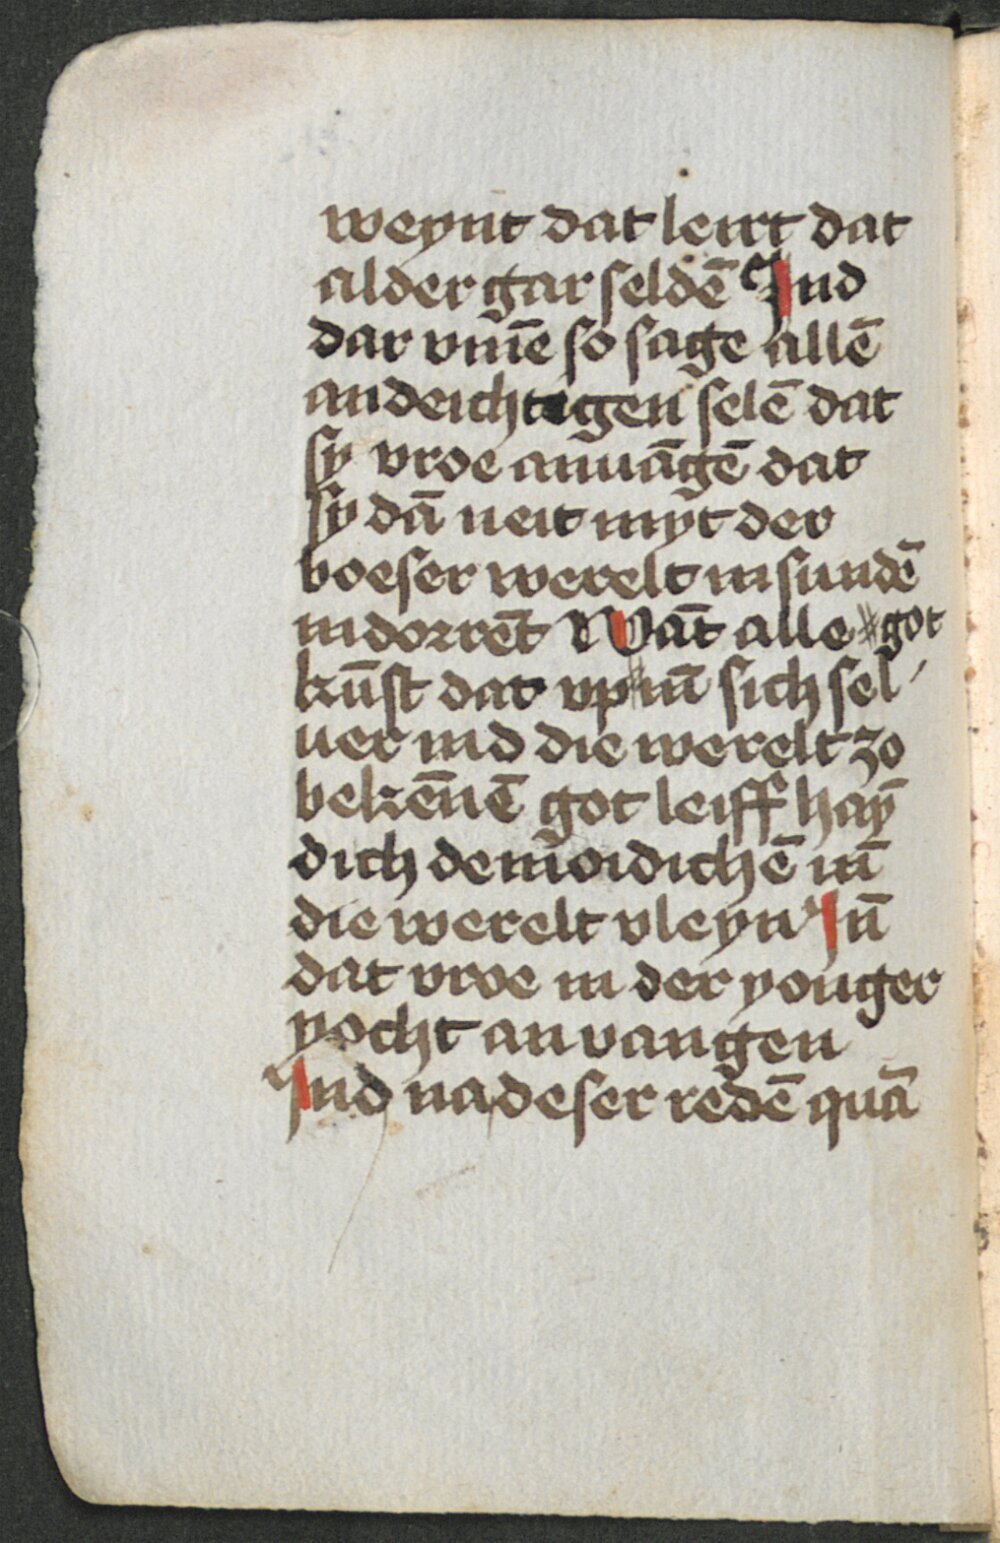 weynt dat leirt dat
alder gar seldē Ind
dar vmē so sage allē
andeichtigen selē dat
sy vroe anuāgē dat
sy dā neit myt der
boeser werelt in sundē
in dorrēt Wāt alle #got
kūst dat vp# in̄ sich sel
uer ind die werelt zo
bekēnē got leiff hay̅
dich demoidichē in̄
die werelt vleyn In̄
dat vroe in der yonger
yocht an vangen
Ind na deser redē quā